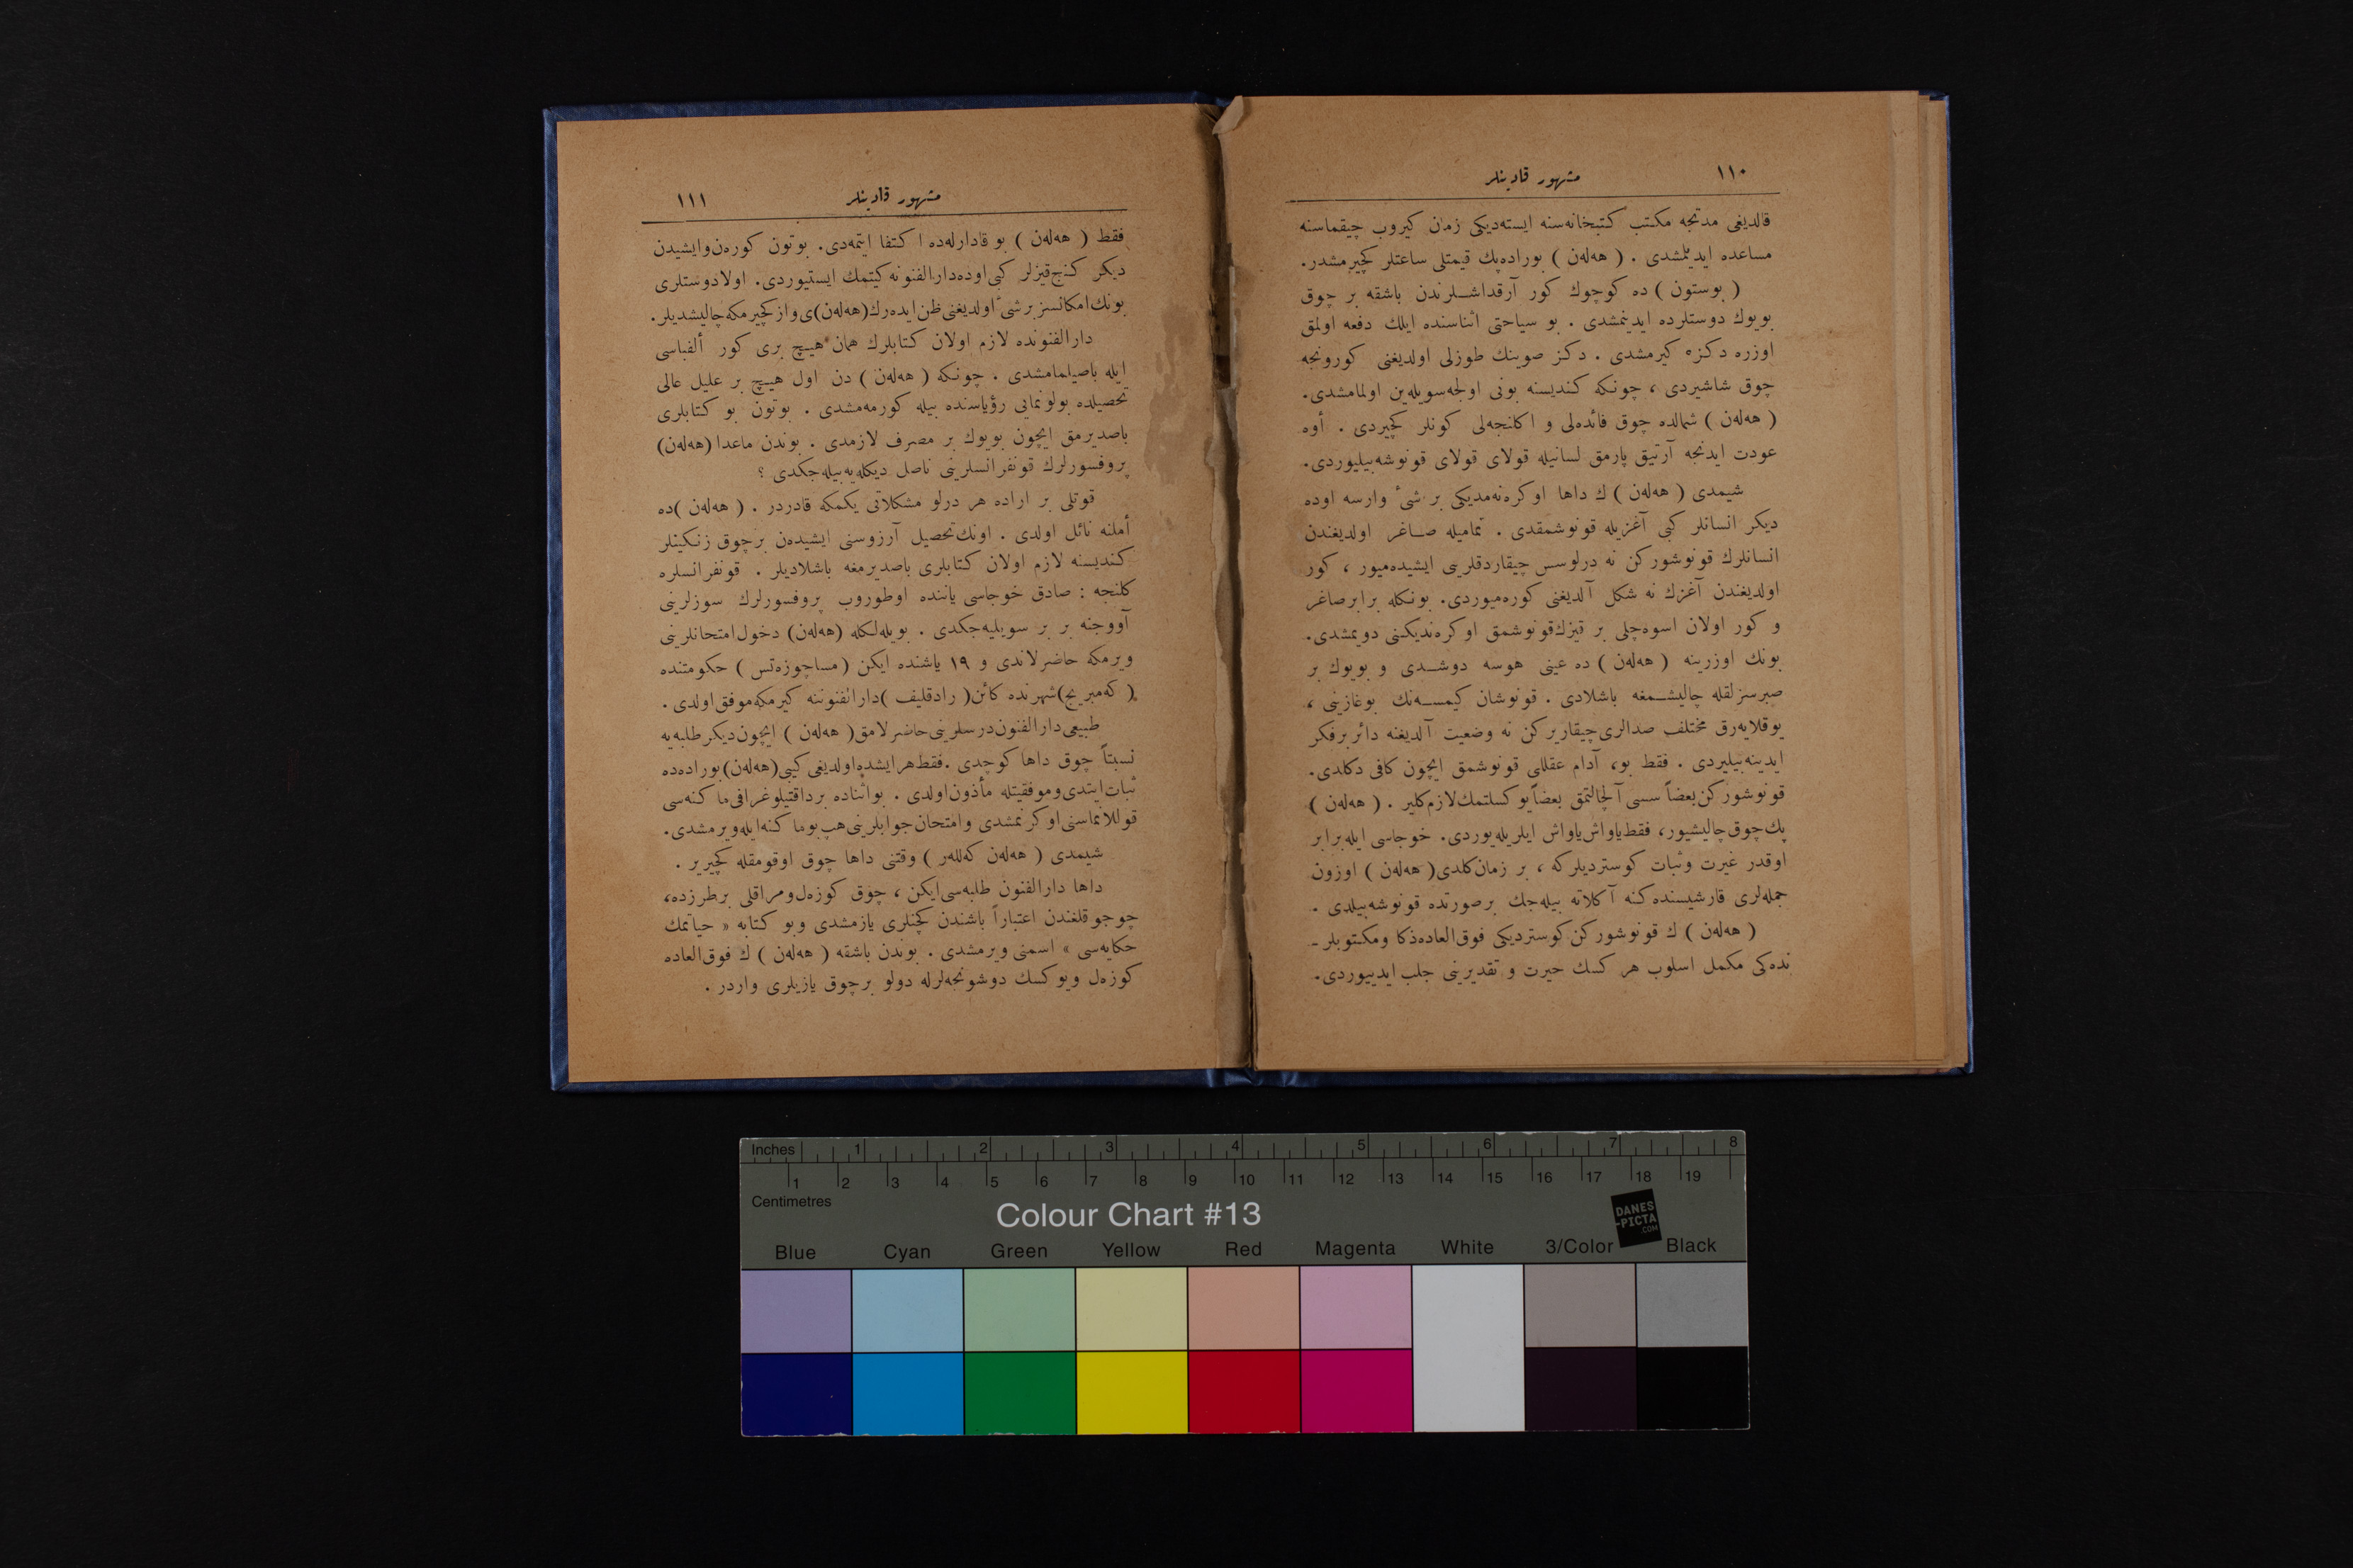 ١١٠
مشهور قادينلر
قالديغى مدتجه مكتب كتبخانه‌سنه ايسته‌ديكى زمان كيروب چيقماسنه
مساعده ايديلمشدى . ( هه‌له‌ن ) بوراده‌پك قيمتلى ساعتلر كچيرمشدر.
( بوستون ) ده كوچوك كور آرقداشلرندن باشقه بر چوق
بويوك دوستلرده ايدينمشدى . بو سياحتى اثناسنده ايلك دفعه اولمق
اوزره دكزه كيرمشدى . دكز صوينك طوزلى اولديغنى كورونجه
چوق شاشيردى ، چونكه كنديسنه بونى اولجه‌سويله‌ين اولمامشدى.
( هه‌له‌ن ) شمالده چوق فائده‌لى و اكلنجه‌لى كونلر كچيردى . أوه
عودت ايدنجه آرتيق پارمق لسانيله قولاى قولاى قونوشه‌بيليوردى.
شيمدى ( هه‌له‌ن ) ك داها اوكره‌نه‌مديكى بر شىٔ وارسه اوده
ديكر انسانلر كبى آغزيله قونوشمقدى . تماميله صاغر اولديغندن
انسانلرك قونوشوركن نه درلوسس چيقاردقلرينى ايشيده‌ميور ، كور
اولديغندن آغزك نه شكل آلديغنى كوره‌ميوردى. بونكله برابرصاغر
و كور اولان اسوه‌چلى بر قيزك‌قونوشمق اوكره‌نديكنى دويمشدى.
بونك اوزرينه ( هه‌له‌ن ) ده عينى هوسه دوشدى و بويوك بر
صبرسزلقله چاليشمغه باشلادى . قونوشان كيمسه‌نك بوغازينى ،
يوقلايه‌رق مختلف صدالرى‌چيقاريركن نه وضعيت آلديغنه دائر برفكر
ايدينه‌بيليردى . فقط بو، آدام عقللى قونوشمق ايچون كافى دكلدى.
قونوشوركن‌بعضاً سسى آلچالتمق بعضاًيوكسلتمك‌لازم‌كلير . ( هه‌له‌ن )
پك‌چوق‌چاليشيور، فقط‌ياواش‌ياواش ايلريله‌يوردى. خوجاسى ايله‌برابر
اوقدر غيرت وثبات كوسترديلركه ، بر زمان‌كلدى( هه‌له‌ن ) اوزون
جمله‌لرى قارشيسنده‌كنه آكلاته بيله‌جك برصورتده قونوشه‌بيلدى .
( هه‌له‌ن ) ك قونوشوركن‌كوسترديكى فوق‌العاده‌ذكا ومكتوبلر ـ
نده‌كى مكمل اسلوب هر كسك حيرت و تقديرينى جلب ايدييوردى.
مشهور قادينلر
١١١
فقط ( هه‌له‌ن ) بو قادارله‌ده ا كتفا ايتمه‌دى. بوتون كوره‌ن‌وايشيدن
ديكر كنج‌قيزلر كبى‌اوده‌دارالفنونه‌كيتمك ايستيوردى. اولادوستلرى
بونك‌امكانسز برشىٔ‌اولديغنى‌ظن‌ايده‌رك(هه‌له‌ن)ى‌وازكچيرمكه‌چاليشديلر.
دارالفنونده لازم اولان كتابلرك همان هيچ برى كور ألفباسى
ايله باصيلمامشدى . چونكه ( هه‌له‌ن ) دن اول هيچ بر عليل عالى
تحصيلده بولونمايى رؤياسنده بيله كورمه‌مشدى . بوتون بو كتابلرى
باصديرمق ايچون بويوك بر مصرف لازمدى . بوندن ماعدا (هه‌له‌ن)
پروفسورلرك قونفرانسلرينى ناصل ديكله‌يه‌بيله‌جكدى ؟
قوتلى بر اراده هر درلو مشكلاتى يكمكه قادردر . ( هه‌له‌ن )ده
أملنه نائل اولدى . اونك‌تحصيل آرزوسنى ايشيده‌ن برچوق زنكينلر
كنديسنه لازم اولان كتابلرى باصديرمغه باشلاديلر . قونفرانسلره
كلنجه : صادق خوجاسى ياننده اوطوروب پروفسورلرك سوزلرينى
آووجنه بر بر سويليه‌جكدى . بويله‌لكله (هه‌له‌ن) دخول‌امتحانلرينى
ويرمكه حاضرلاندى و ١٩ ياشنده ايكن ( مساچوزه‌تس ) حكومتنده
( كه‌مبريج)شهرنده كائن( رادقليف )دارالفنوننه كيرمكه‌موفق‌اولدى .
طبيعى‌دارالفنون‌درسلرينى‌حاضرلامق( هه‌له‌ن ) ايچون‌ديكر طلبه‌يه
نسبتاً چوق داها كوچدى .فقط‌هرايشده‌اولديغى‌كيبى(هه‌له‌ن)بوراده‌ده
ثبات‌ايتدى‌وموفقيتله مأذون‌اولدى . بواثناده برداقتيلوغرافى‌ما كنه‌سى
قوللانماسنى‌اوكرنمشدى وامتحان‌جوابلرينى‌هپ‌بوما كنه‌ايله‌ويرمشدى.
شيمدى ( هه‌له‌ن كه‌لله‌ر ) وقتنى داها چوق اوقومقله كچيرير .
داها دارالفنون طلبه‌سى‌ايكن ، چوق كوزه‌ل‌ومراقلى برطرزده،
چوجوقلغندن اعتباراً باشندن كچنلرى يازمشدى وبو كتابه « حياتمك
حكايه‌سى » اسمنى ويرمشدى . بوندن باشقه ( هه‌له‌ن ) ك فوق‌العاده
كوزه‌ل ويوكسك دوشونجه‌لرله دولو برچوق يازيلرى واردر .
Inches 1 2 3 4 5 6 7 8
1 2 3 4 5 6 7 8 9 10 11 12 13 14 15 16 17 18 19
Centimetres
Colour Chart #13
DANES
-PICTA
.COM
Blue Cyan Green Yellow Red Magenta White 3/Color Black